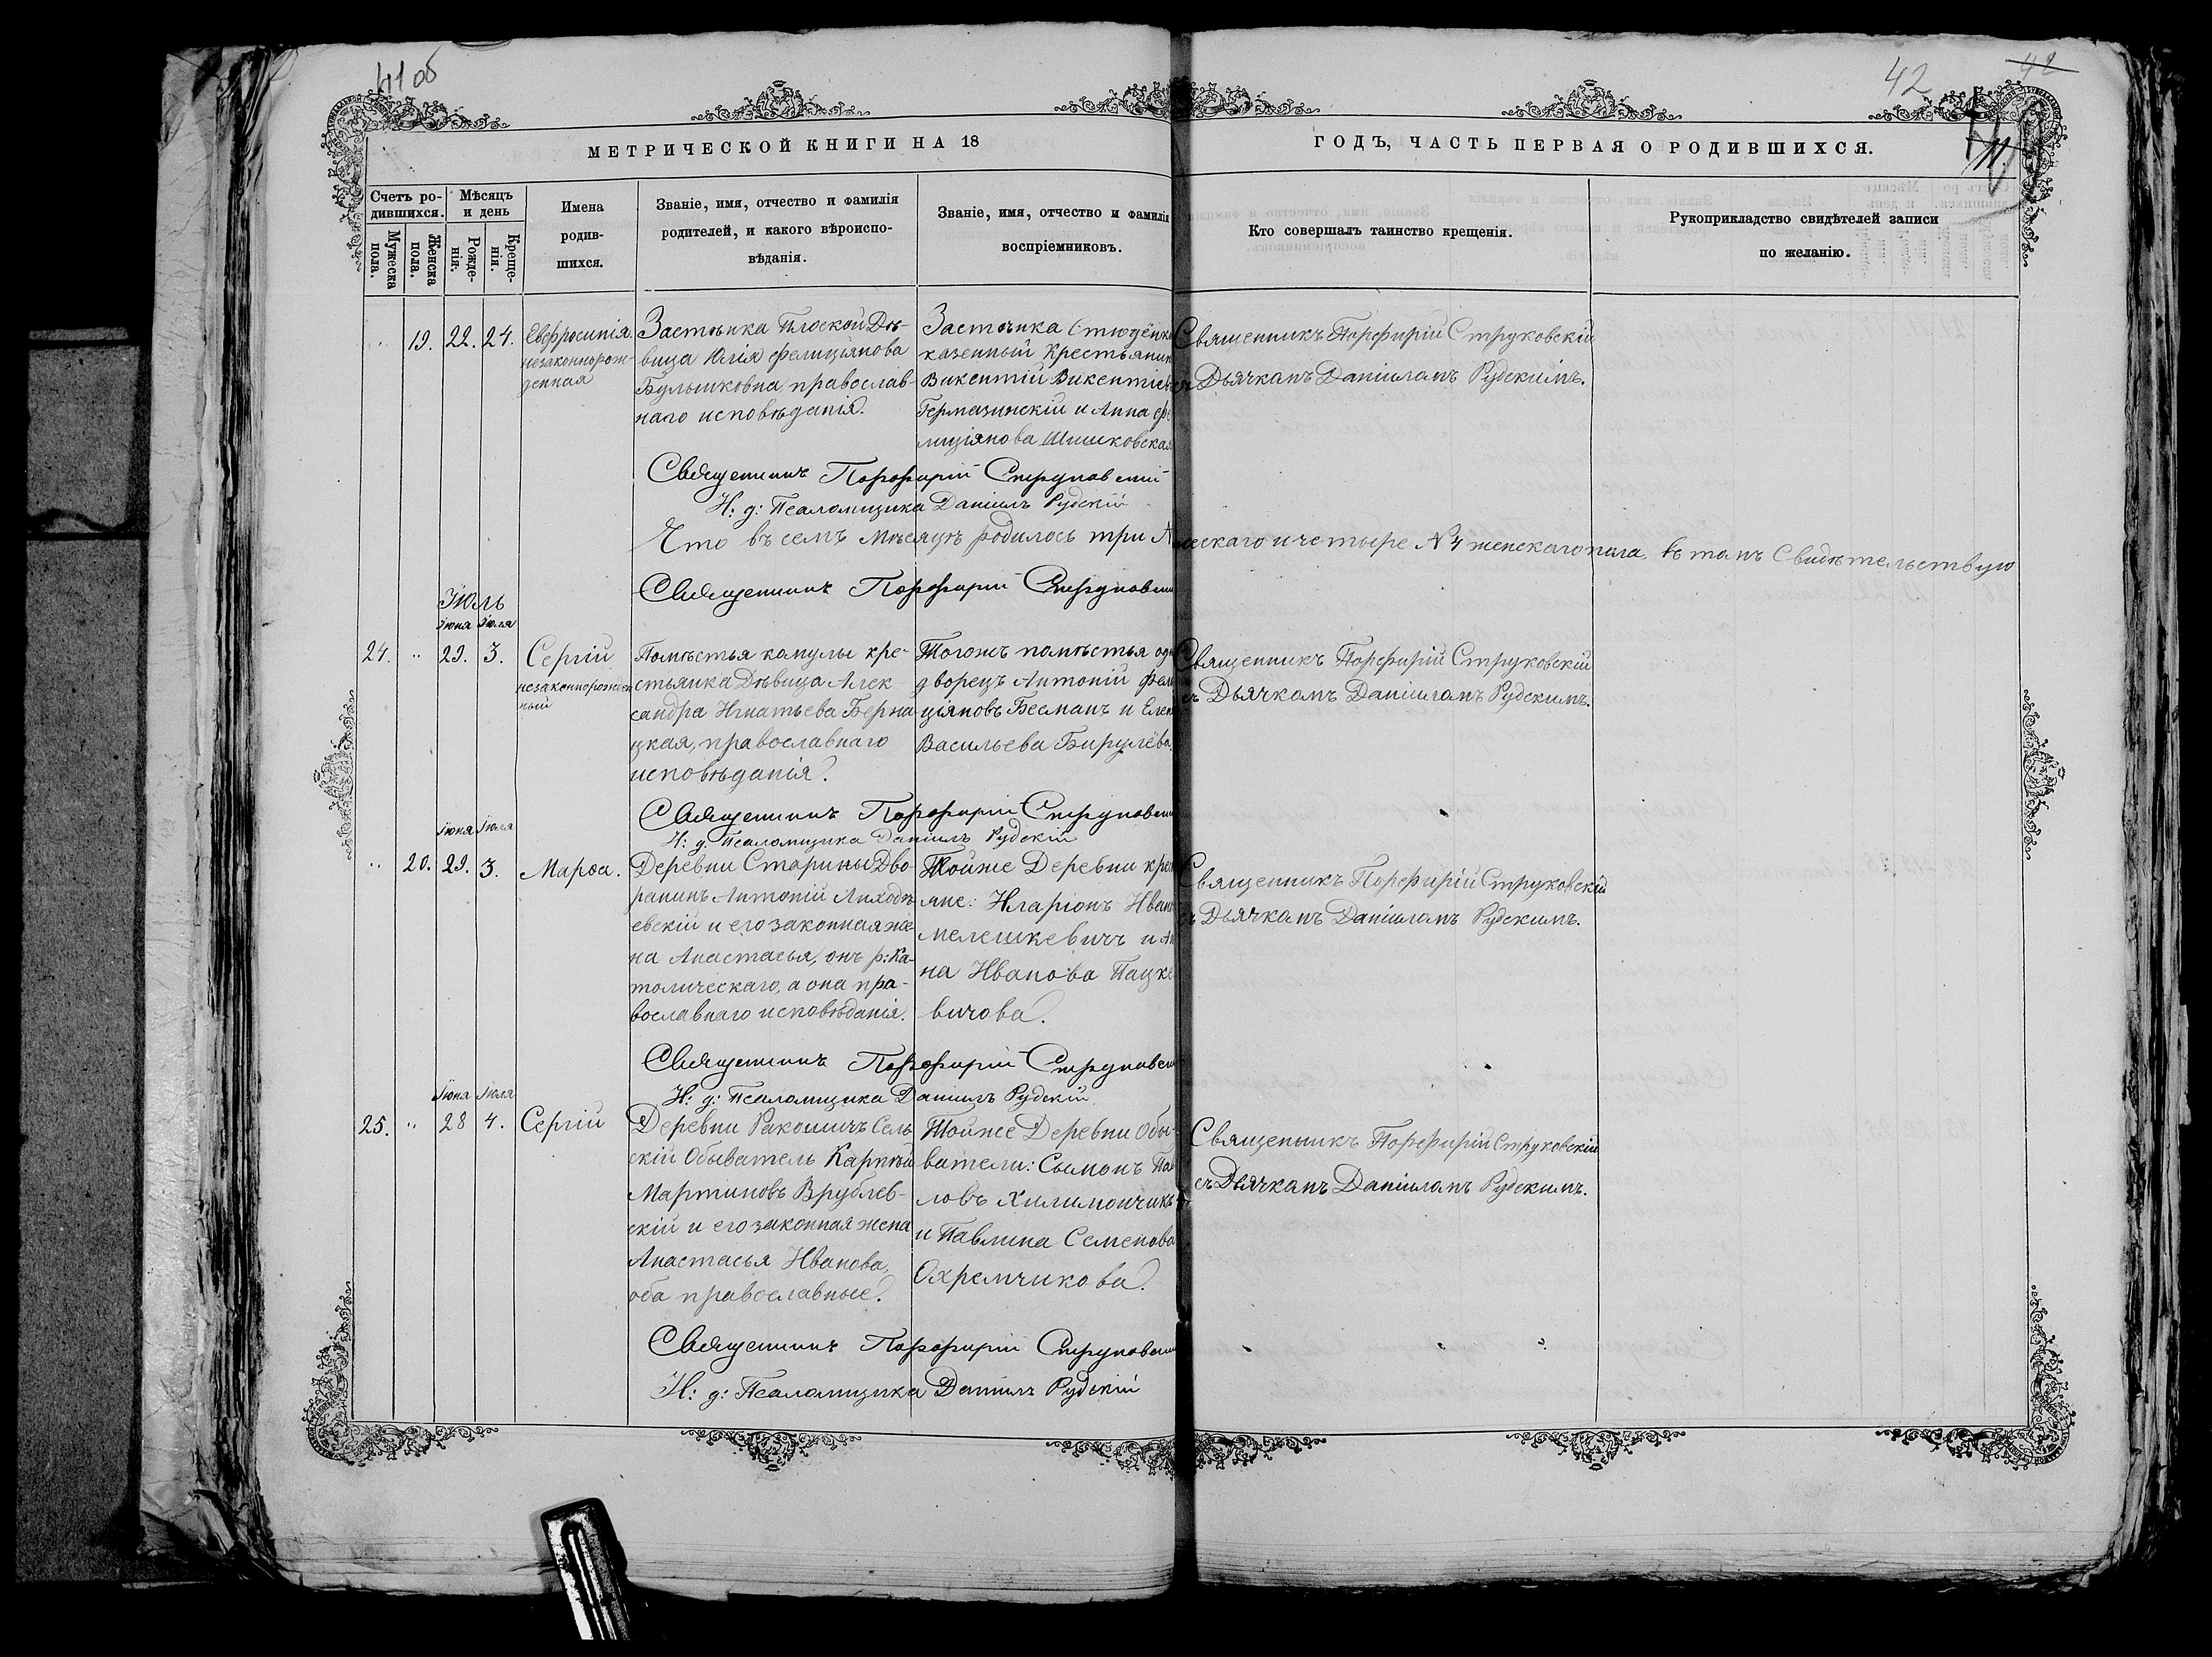 41 об
42
42
МЕТРИЧЕСКОЙ КНИГИ НА 18
ГОДЪ, ЧАСТЬ ПЕРВАЯ О РОДИВШИХСЯ.
Счетъ ро-
дившихся.
Мужеска
пола.
Женска
пола.
Мѣсяцъ
и день
Рожде-
нія.
Креще-
нія.
Имена
родив-
шихся.
Званіе, имя, отчество и фамилія
родителей, и какого вѣроиспо-
вѣданія.
Званіе, имя, отчество и фамилія
воспріемниковъ.
Кто совершалъ таинство крещенія.
Рукоприкладство свидѣтелей записи
по желанію.
" 19. 22. 24.
Евфросинія
незаконнорож-
денная
Застѣнка Плоской Дѣ-
вица Юлія Фелиціянова
Булышковна православ-
наго исповѣданія.
Застѣнка Стюдёнка
казенный Крестьянин
Викентій Викентіев
Гермазинскій и Анна Фе
лиціянова Шишковская
Священникъ Порфирій Струковскій
съ Дьячкомъ Даніиломъ Рудскимъ.
Священникъ Порфирій Струковскій
И: д: Псаломщика Даніилъ Рудскій
Что въ семъ мѣсяцѣ родилось три мужескаго и четыре № 4 женскаго пола, въ томъ Свидѣтельствую
Священникъ Порфирій Струковскій
Іюль
Іюня Іюля
24. " 29. 3.
Сергій
незаконнорожден
ный
Помѣстья Камулы кре-
стьянка Дѣвица Алек
сандра Игнатьева Берна
цкая, православнаго
исповѣданія.
Тогожъ помѣстья одн
дворецъ Антоній Фели
ціяновъ Бееманъ и Елен
Васильева Бирулёва.
Священникъ Порфирій Струковскій
съ Дьячкомъ Даніиломъ Рудскимъ.
Священникъ Порфирій Струковскій
И: д: Псаломщика Даніилъ Рудскій
Іюня Іюля
" 20. 29. 3.
Марѳа.
Деревни Старины Дво-
рянинъ Антоній Лиходѣ
евскій и его законная же
на Анастасья, онъ р: Ка-
толическаго, а она пра-
вославнаго исповѣданія.
Тойже Деревни крест
яне: Иларіонъ Ивано
Мелешкевичъ и Ан
на Иванова Пацке
вичова.
Священникъ Порфирій Струковскій
съ Дьячкомъ Даніиломъ Рудскимъ.
Священникъ Порфирій Струковскій
И: д: Псаломщика Даніилъ Рудскій
Іюня Іюля
25. " 28 4.
Сергій
Деревни Ракошичъ Сель
скій Обыватель Карпѣй
Мартиновъ Врублев-
скій и его законная жена
Анастасья Иванова,
оба православные.
Тойже Деревни Обы-
ватели: Сымонъ Пав
ловъ Хилимончикъ
и Павлина Семенова
Охремчикова.
Священникъ Порфирій Струковскій
съ Дьячкомъ Даніиломъ Рудскимъ.
Священникъ Порфирій Струковскій
И: д: Псаломщика Даніилъ Рудскій